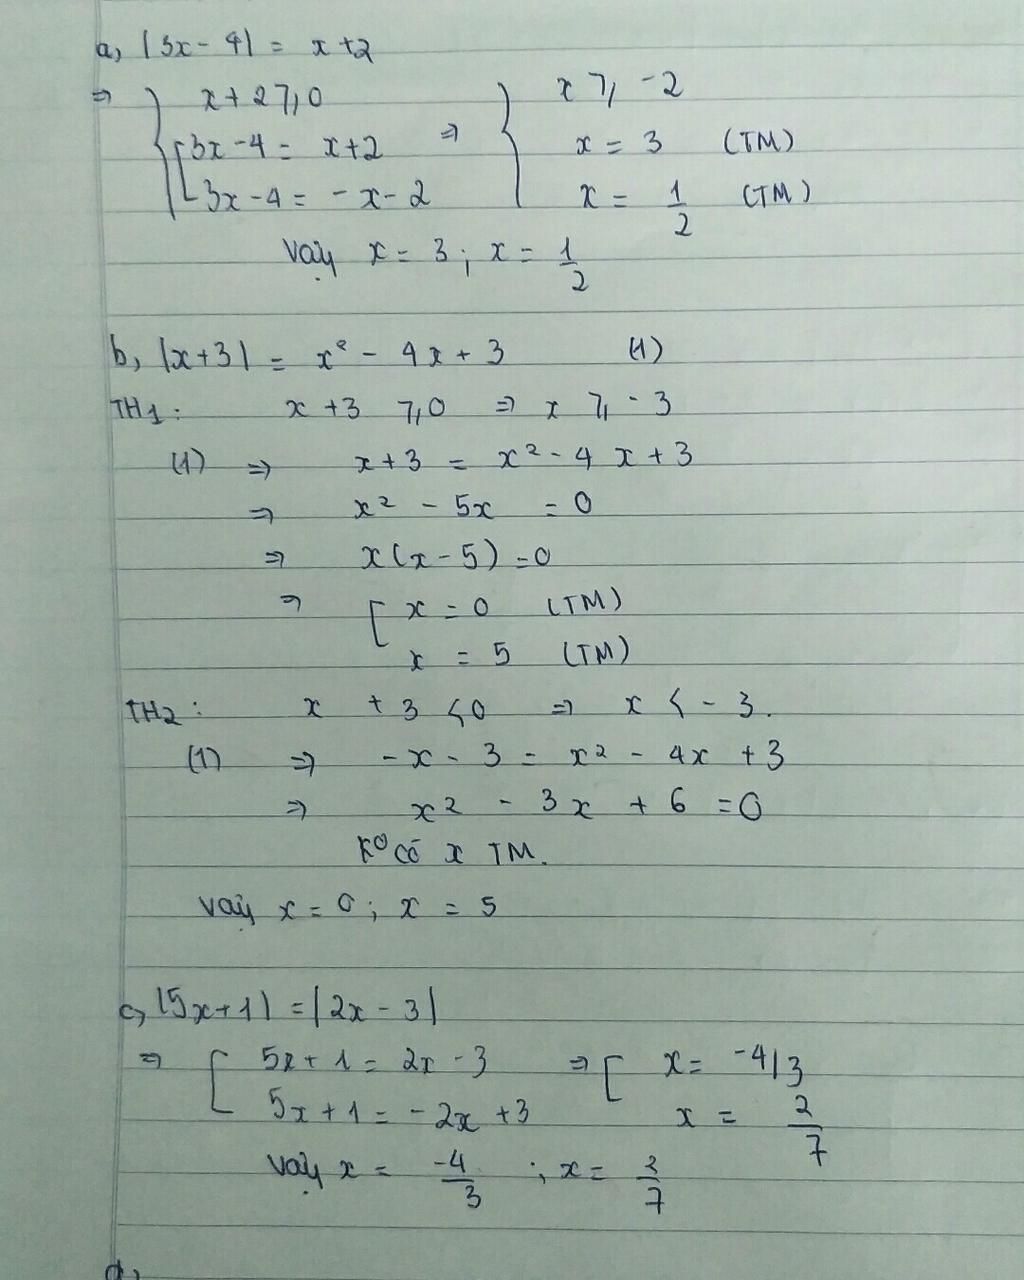 a, |3x - 4| = x + 2
⇒ { x + 2 ≥ 0 ⇒ { x ≥ -2
[ 3x - 4 = x + 2 x = 3 (TM)
3x - 4 = - x - 2 x = 1/2 (TM)
Vậy x = 3 ; x = 1/2
b, |x + 3| = x² - 4x + 3 (1)
TH1 : x + 3 ≥ 0 ⇒ x ≥ - 3
(1) ⇒ x + 3 = x² - 4x + 3
⇒ x² - 5x = 0
⇒ x(x - 5) = 0
⇒ [ x = 0 (TM)
x = 5 (TM)
TH2 : x + 3 < 0 ⇒ x < - 3.
(1) ⇒ - x - 3 = x² - 4x + 3
⇒ x² - 3x + 6 = 0
K° có x TM.
Vậy x = 0 ; x = 5
c, |5x + 1| = |2x - 3|
⇒ [ 5x + 1 = 2x - 3 ⇒ [ x = -4/3
5x + 1 = - 2x + 3 x = 2/7
Vậy x = -4/3 ; x = 2/7
d,